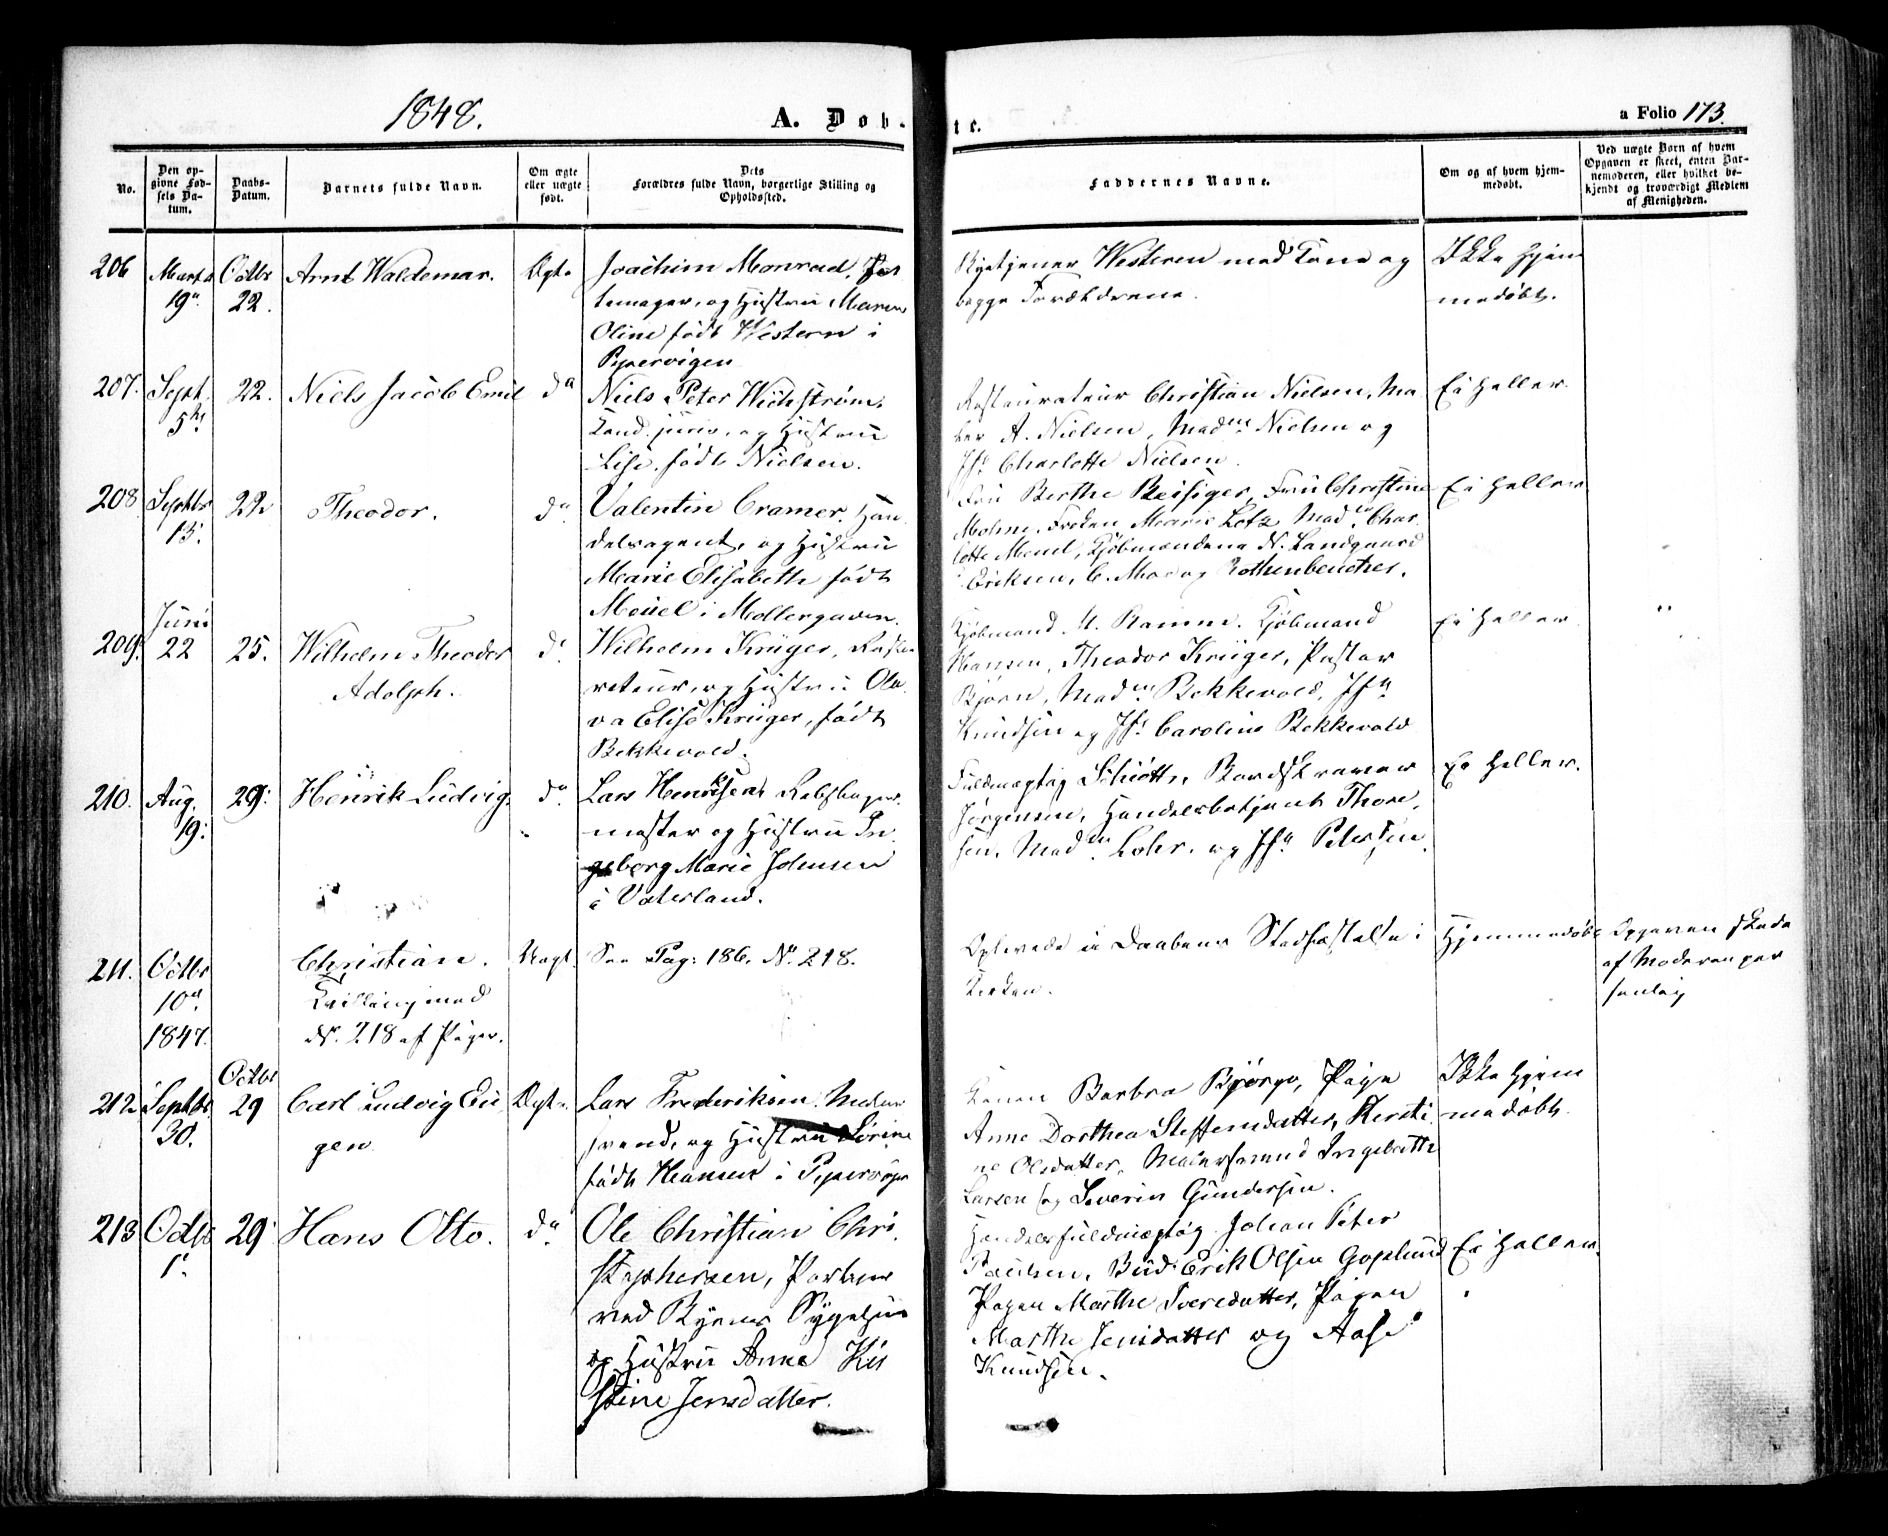 1848.
A. Døb-
te.
a Folio 173.
No.
Den op-
givne Fød-
sels Da-
tum.
Daabs-
Datum.
Barnets fulde Navn.
Om ægte
eller uægte
født.
Dets
Forældres fulde Navn, borgerlige Stilling og
Opholdssted.
Faddernes Navne.
Om og af hvem hjem-
medøbt.
Ved uægte Børn af hvem
Opgaven er skeet, enten Bar-
nemoderen, eller hvilket be-
kjendt og troværdigt Medlem
af Menigheden.
206
Marts
19de
Octbr
22.
Arnt Waldemar.
Ægte
Joachim Monrad,
og Hustru Maren
Oline født Western i
Pipervigen
Western med Kone og
begge Forældrene.
Ikke hjem
medøbt.
207.
Sept.
5te
22.
Niels Jacob Emil
do
Niels Peter Wichstrøm,
Cand. juris, og Hustru
Lise, født Nielsen.
Restaurateur Christian Nielsen, Ma
ler A. Nielsen, Madm Nielsen og
Jfr Charlotte Nielsen.
Ei heller.
208
Septbr
13.
22
Theodor.
do
Valentin Cramer, Han
delsagent, og Hustru
Marie Elisabeth født
Meuel i Møllergaden.
Fru Berthe Beisiger, Fru Christine
Molme, Frøken Marie Lotz, Madm Char
lotte Meuel, Kjøbmændene N. Landgaard
Eriksen, C. Moe og Rothenbeucher.
Ei heller
209.
Juni
22
25.
Wilhelm Theodor
Adolph.
do
Wilhelm Krüger, Restau
rateur, og Hustru Ola
va Elise Krüger, født
Bekkevold.
Kjøbmand M. Ramm, Kjøbmand
Hansen, Theodor Krüger, Pastor
Bjørn, Madm Bekkevold, Jfr
Knudsen og Jfr Caroline Bekkevold
Ei heller
210.
Aug.
19.
29.
Henrik Ludvig.
do
Lars Henriksen Rebslager
mester og Hustru In
geborg Marie Johnsen
i Vaterland.
Fuldmægtig Schiøtt,
Jørgensen, Handelsbetjent Thore
sen, Madm Lohr, og Jfr Petersen.
Ei heller.
211.
Octbr
10de
1847.
Christian.
Tvilling med
No. 218 af Piger.
Uægt.
See Pag: 186. No. 218.
Oplevede ei Daabens Stadfæstelse i
Kirken.
Hjemmedøbt
Opgaven skede
af Moderen per
sonlig
212
Septbr
30.
Octbr
29
Carl Ludvig Eu
gen
Ægte.
Lars Frederiksen Maler
svend, og Hustru Sørine
født Hansen i Pipervigen
Konen Barbra Bjørge, Pige
Anne Dorthea Steffensdatter, Kersti
ne Olsdatter, Malersvend Ingebreth
Larsen og Severin Gundersen.
Ikke hjem
medøbt
213
Octbr
1.
29
Hans Otto.
do
Ole Christian Chri
stophersen, Portner
ved Byens Sygehus
og Hustru Anne Kir
stine Jensdatter.
Handelsfuldmægtig Johan Peter
Paulsen, Bud Erik Olsen Goplund
Pigen Marthe Iversdatter, Pigen
Marthe Jensdatter og Aase
Knudsen.
Ei heller.